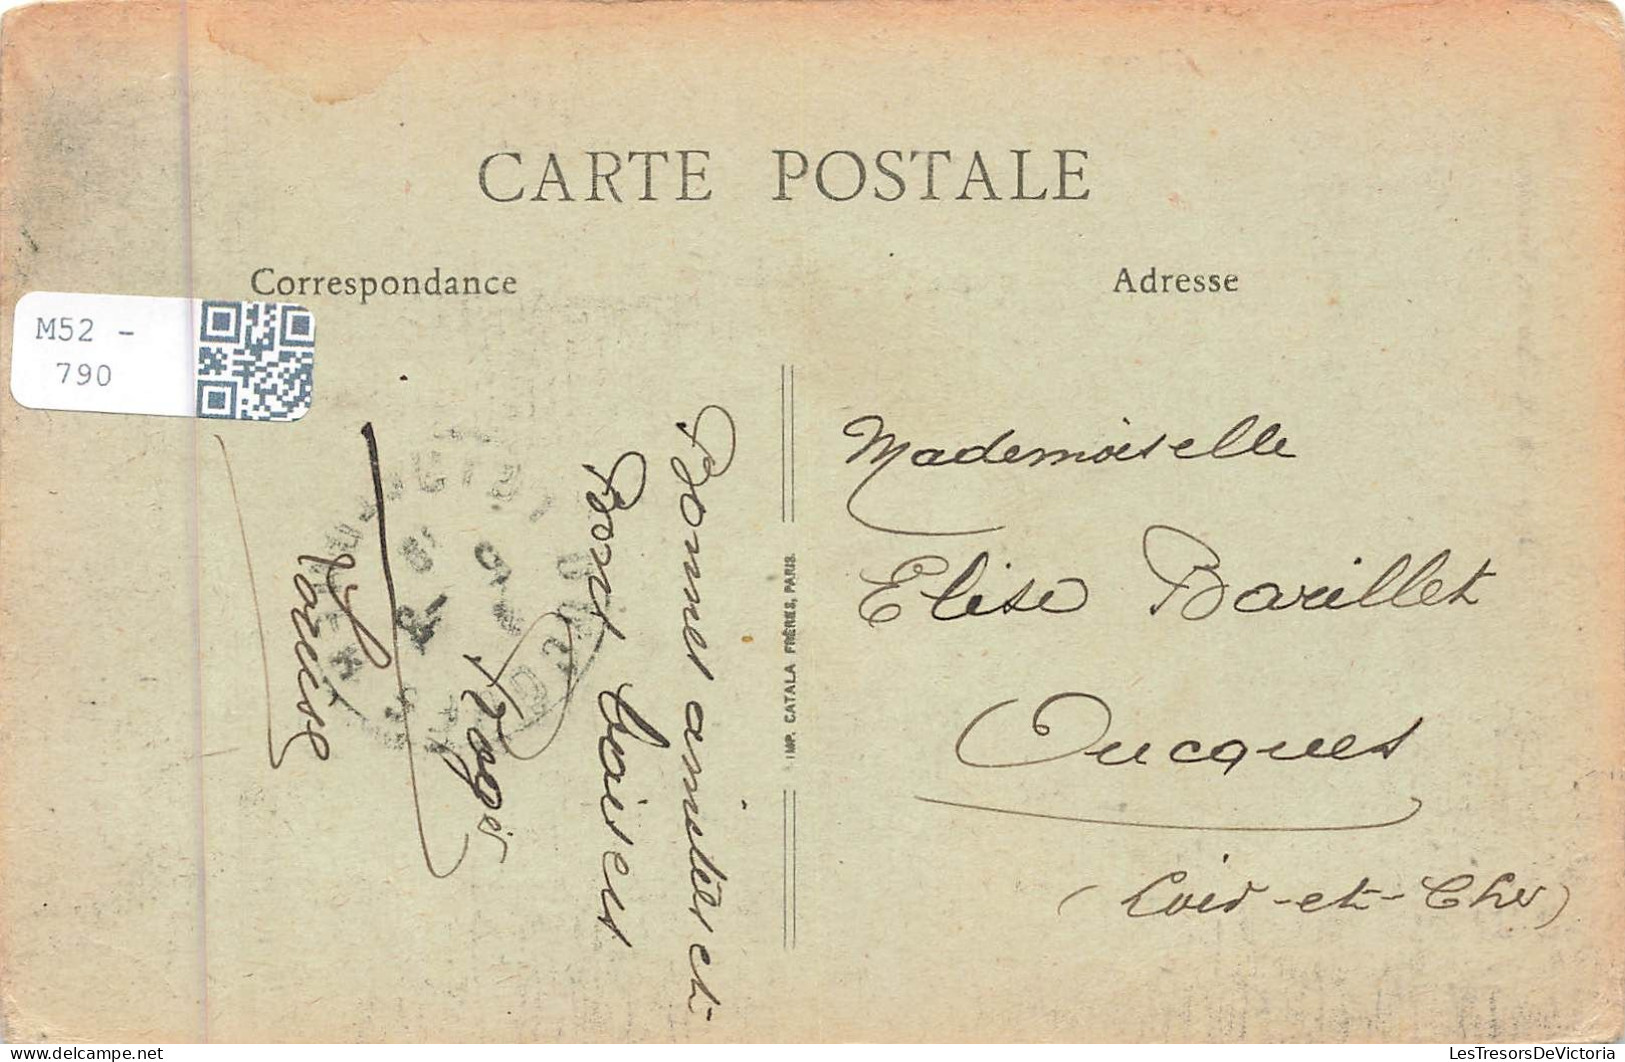 CARTE POSTALE
Correspondance
Adresse
M52 -
790
Bonnes amitiés et
Bons baisers
Louise
IMP. CATALA FRÈRES, PARIS.
Mademoiselle
Elise Barillet
Oucques
(Loir-et-Cher)
LesTresorsDeVictoria